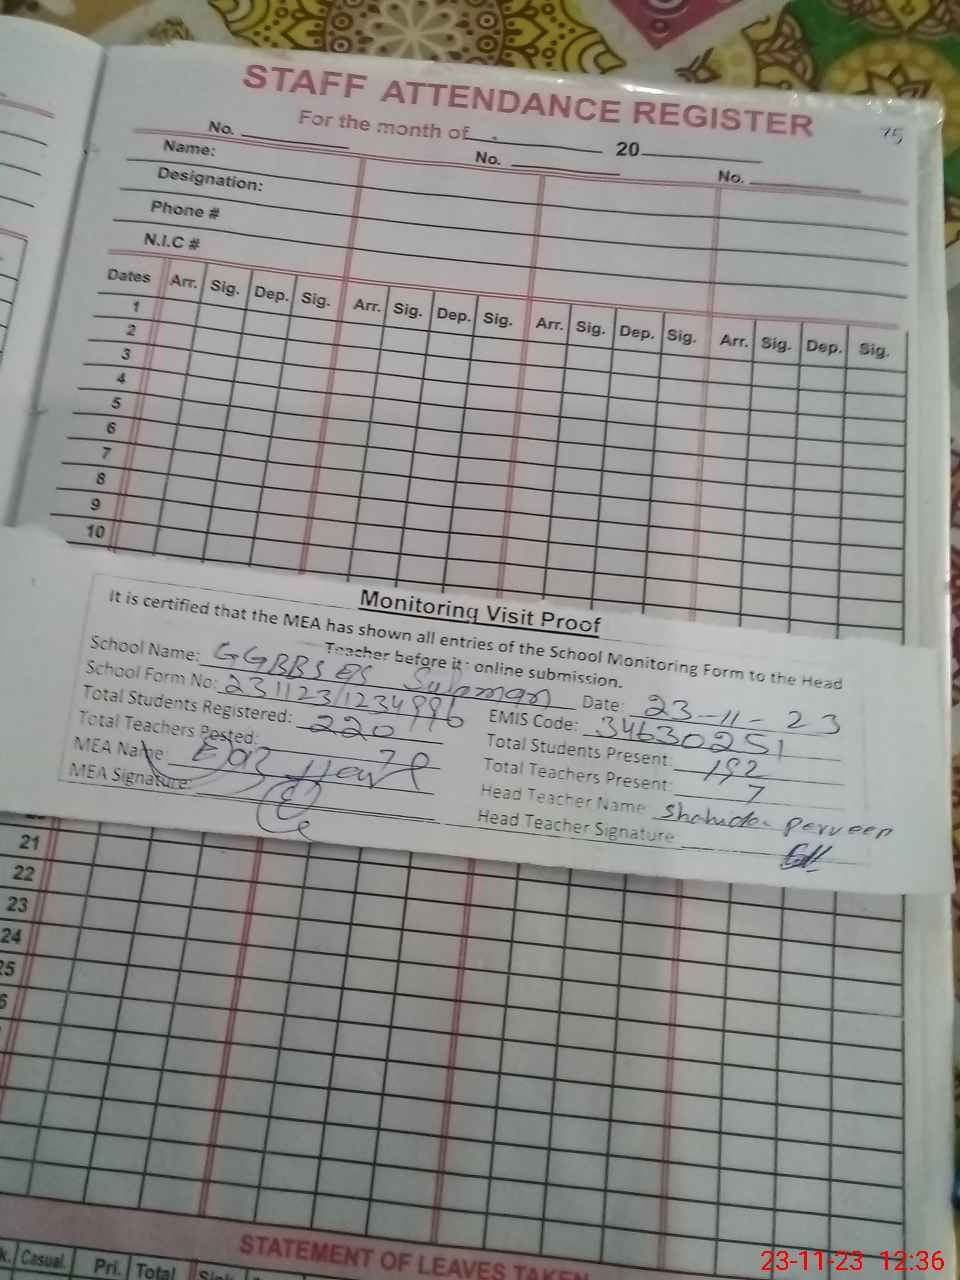 STAFF ATTENDANCE REGISTER
75
For the month of 20
No. No. No.
Name:
Designation:
Phone #
N.I.C #
Dates Arr. Sig. Dep. Sig. Arr. Sig. Dep. Sig. Arr. Sig. Dep. Sig. Arr. Sig. Dep. Sig.
1
2
3
4
5
6
7
8
9
10
Monitoring Visit Proof
It is certified that the MEA has shown all entries of the School Monitoring Form to the Head
Teacher before its online submission.
School Name: Date: 23-11-23
School Form No: 231123/1234996 EMIS Code: 34630251
Total Students Registered: 220 Total Students Present: 192
Total Teachers Posted: 7 Total Teachers Present: 7
MEA Name: Head Teacher Name: Shahida Perveen
MEA Signature: Head Teacher Signature
21
22
23
24
25
STATEMENT OF LEAVES TAKEN
Casual. Pri. Total
23-11-23 12:36